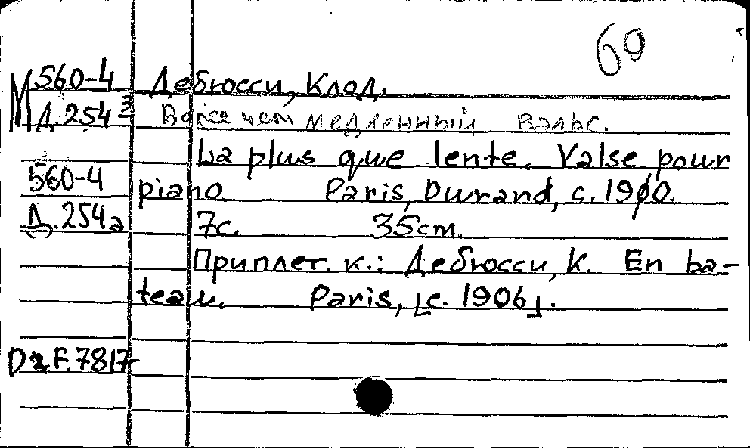 60
М 560-4 Дебюсси, Клод.
Д.254з Более чем медленный вальс.
La plus que lente. Valse pour
560-4 piano. Paris, Durand, c. 1910.
Д.254а 7с. 35cm.
Приплет. к.: Дебюсси, К. En ba-
teau. Paris, [c. 1906].
D2F.7817